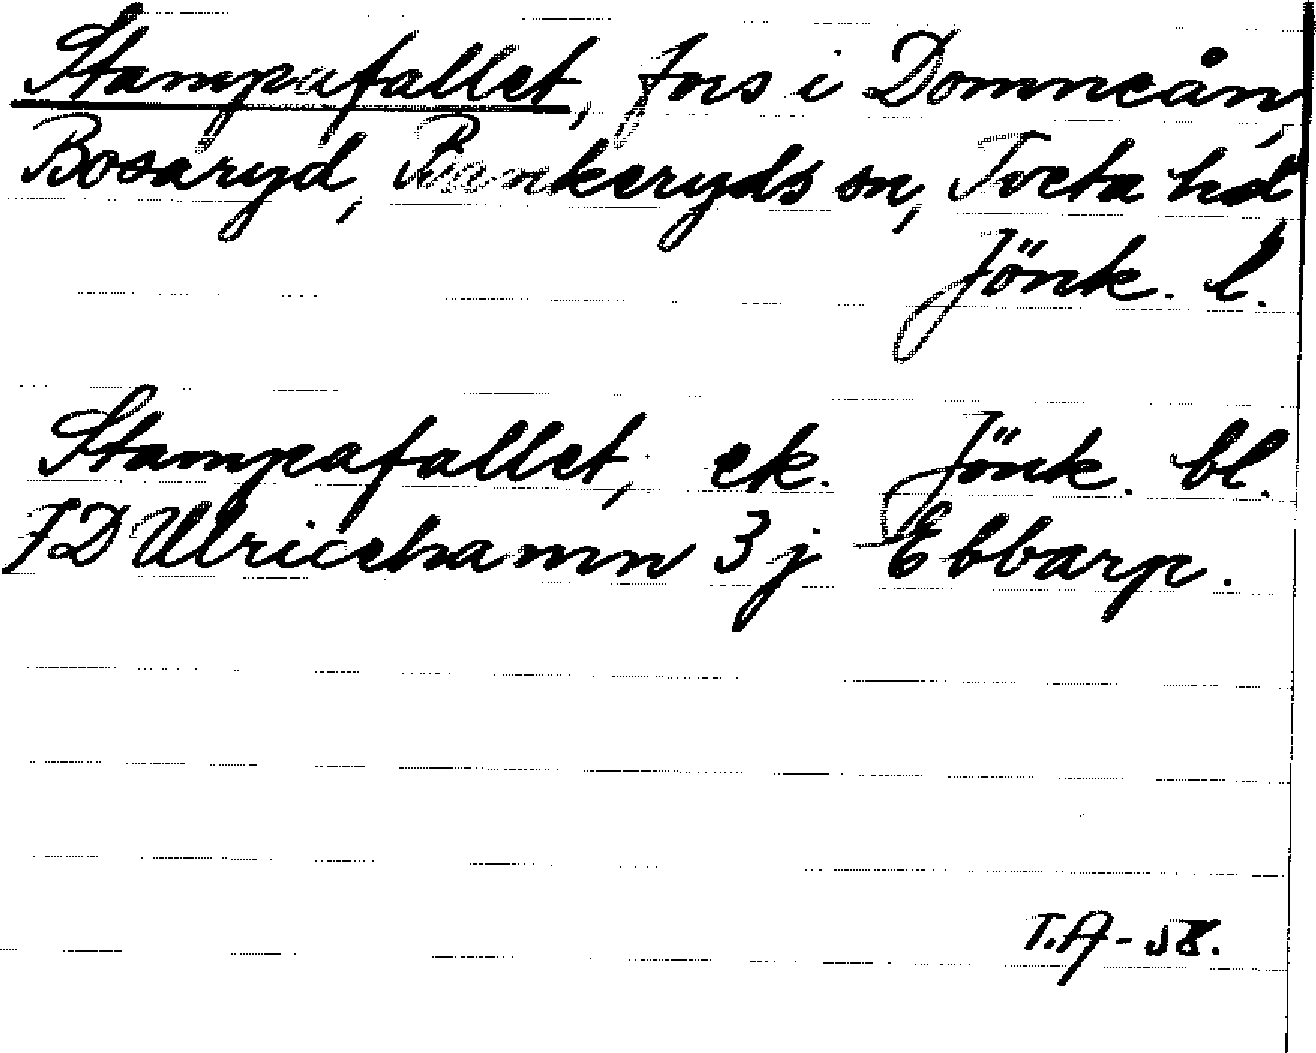 Stampafallet, fors i Domneån,
Bosaryd, Bankeryds sn, Tveta hd
Jönk. l.
Stampafallet, ek. Jönk. bl.
7D Ulricehamn 3j Ebbarp.
T.A-58.